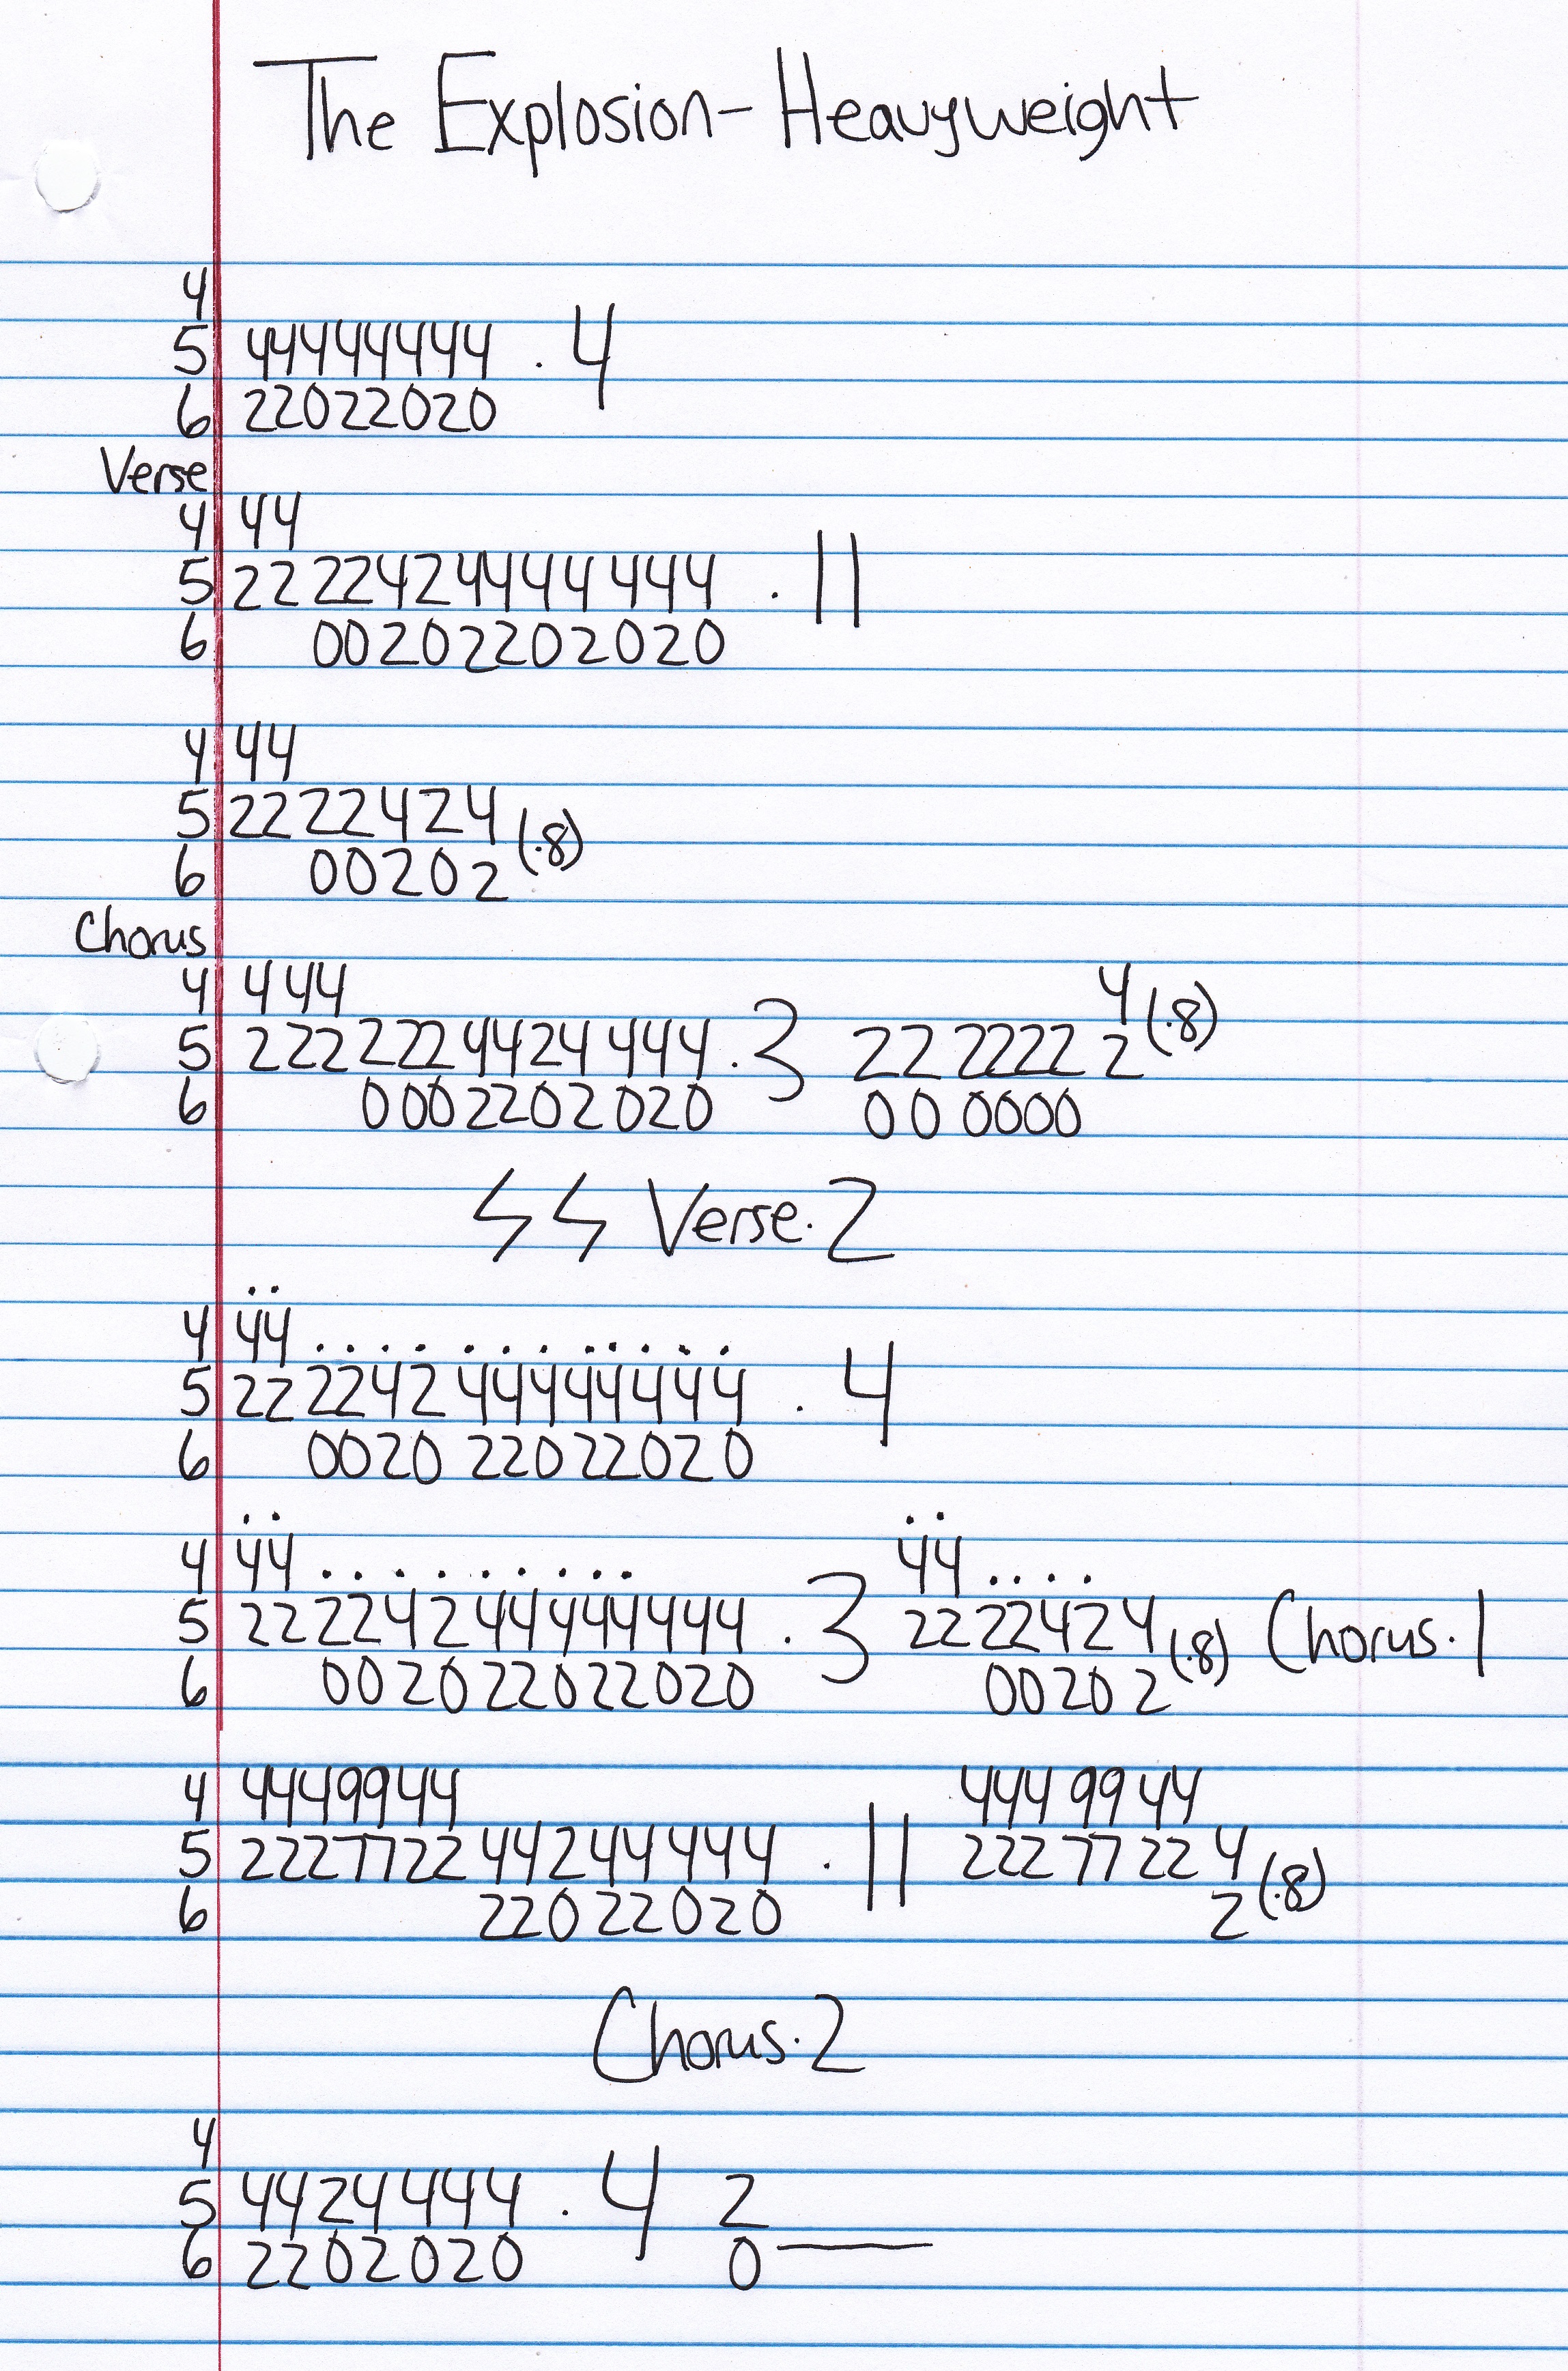 The Explosion - Heavyweight
4
5 44444444 . 4
6 22022020
Verse
4 44
5 22 22424444 444 . ||
6 00202202020
4 44
5 2222424 (.8)
6 00202
Chorus
4 444 4 (.8)
5 222 222 4424 444 . 3 22 2222 2
6 0002202020 00 0000
ϟϟ Verse . 2
4 44 . . . . . . . . . . . .
5 22 2242 44444444 . 4
6 0020 22022020
4 44 . . . . . . . . . 44 . . . .
5 22 2242 44444444 . 3 2222424 (.8) Chorus . 1
6 0020 22022020 00202
4 4449944 444 99 44
5 2227722 44244444 . || 222 77 22 4 (.8)
6 22022020 2
Chorus . 2
4
5 4424444 . 4 2
6 2202020 0 —